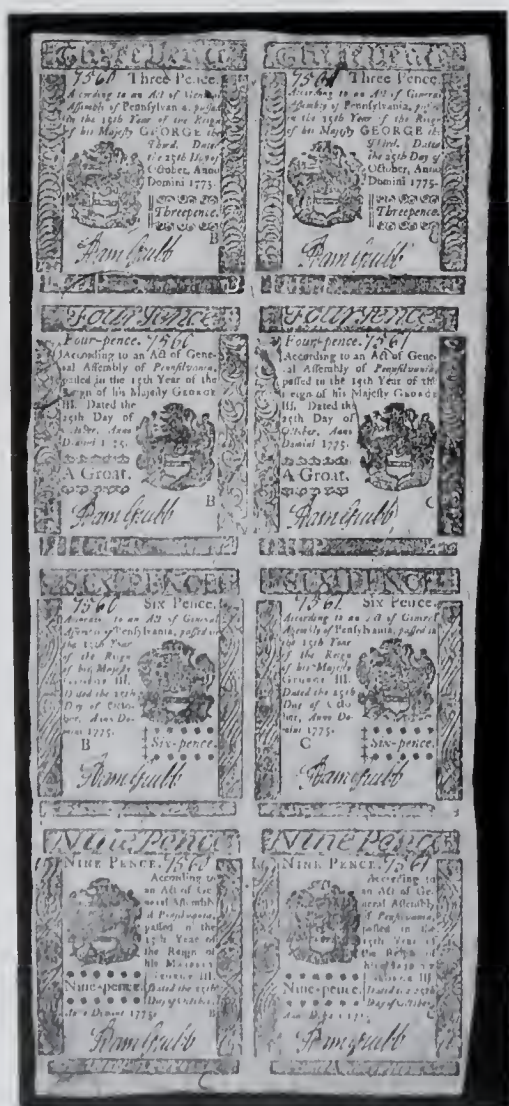 Three Pence
7560 Three Pence.
According to an Act of General
Assembly of Pennsylvania, passed
in the 15th Year of the Reign
of his Majesty GEORGE the
Third. Dated
the 25th Day of
October, Anno
Domini 1775.
Threepence.
B
Sam Grubb
Three Pence
7561 Three Pence.
According to an Act of General
Assembly of Pennsylvania, passed
in the 15th Year of the Reign
of his Majesty GEORGE the
Third. Dated
the 25th Day of
October, Anno
Domini 1775.
Threepence.
C
Fourpence
Four-pence. 7560
According to an Act of Gene-
ral Assembly of Pennsylvania,
passed in the 15th Year of the
Reign of his Majesty GEORGE
III. Dated the
25th Day of
October, Anno
Domini 1775.
A Groat.
B
Fourpence
Four-pence. 7561
According to an Act of Gene-
ral Assembly of Pennsylvania,
passed in the 15th Year of the
Reign of his Majesty GEORGE
III. Dated the
25th Day of
October, Anno
Domini 1775.
A Groat.
C
SIXPENCE
7560 Six Pence.
According to an Act of General
Assembly of Pennsylvania, passed in
the 15th Year
of the Reign
of his Majesty
GEORGE III.
Dated the 25th
Day of Octo-
ber, Anno Do-
mini 1775.
B
Six-pence.
SIXPENCE
7561 Six Pence.
According to an Act of General
Assembly of Pennsylvania, passed in
the 15th Year
of the Reign
of his Majesty
GEORGE III.
Dated the 25th
Day of Octo-
ber, Anno Do-
mini 1775.
C
Six-pence.
Nine Pence
NINE PENCE. 7560
According to
an Act of Ge-
neral Assembly
of Pennsylvania,
passed in the
15th Year of
the Reign of
his Majesty
GEORGE III.
Nine-pence. Dated the 25th
Day of October,
Anno Domini 1775. B
Nine Pence
NINE PENCE. 7561
According to
an Act of Ge-
neral Assembly
of Pennsylvania,
passed in the
15th Year of
the Reign of
his Majesty
GEORGE III.
Nine-pence. Dated the 25th
Day of October,
Anno Domini 1775. C